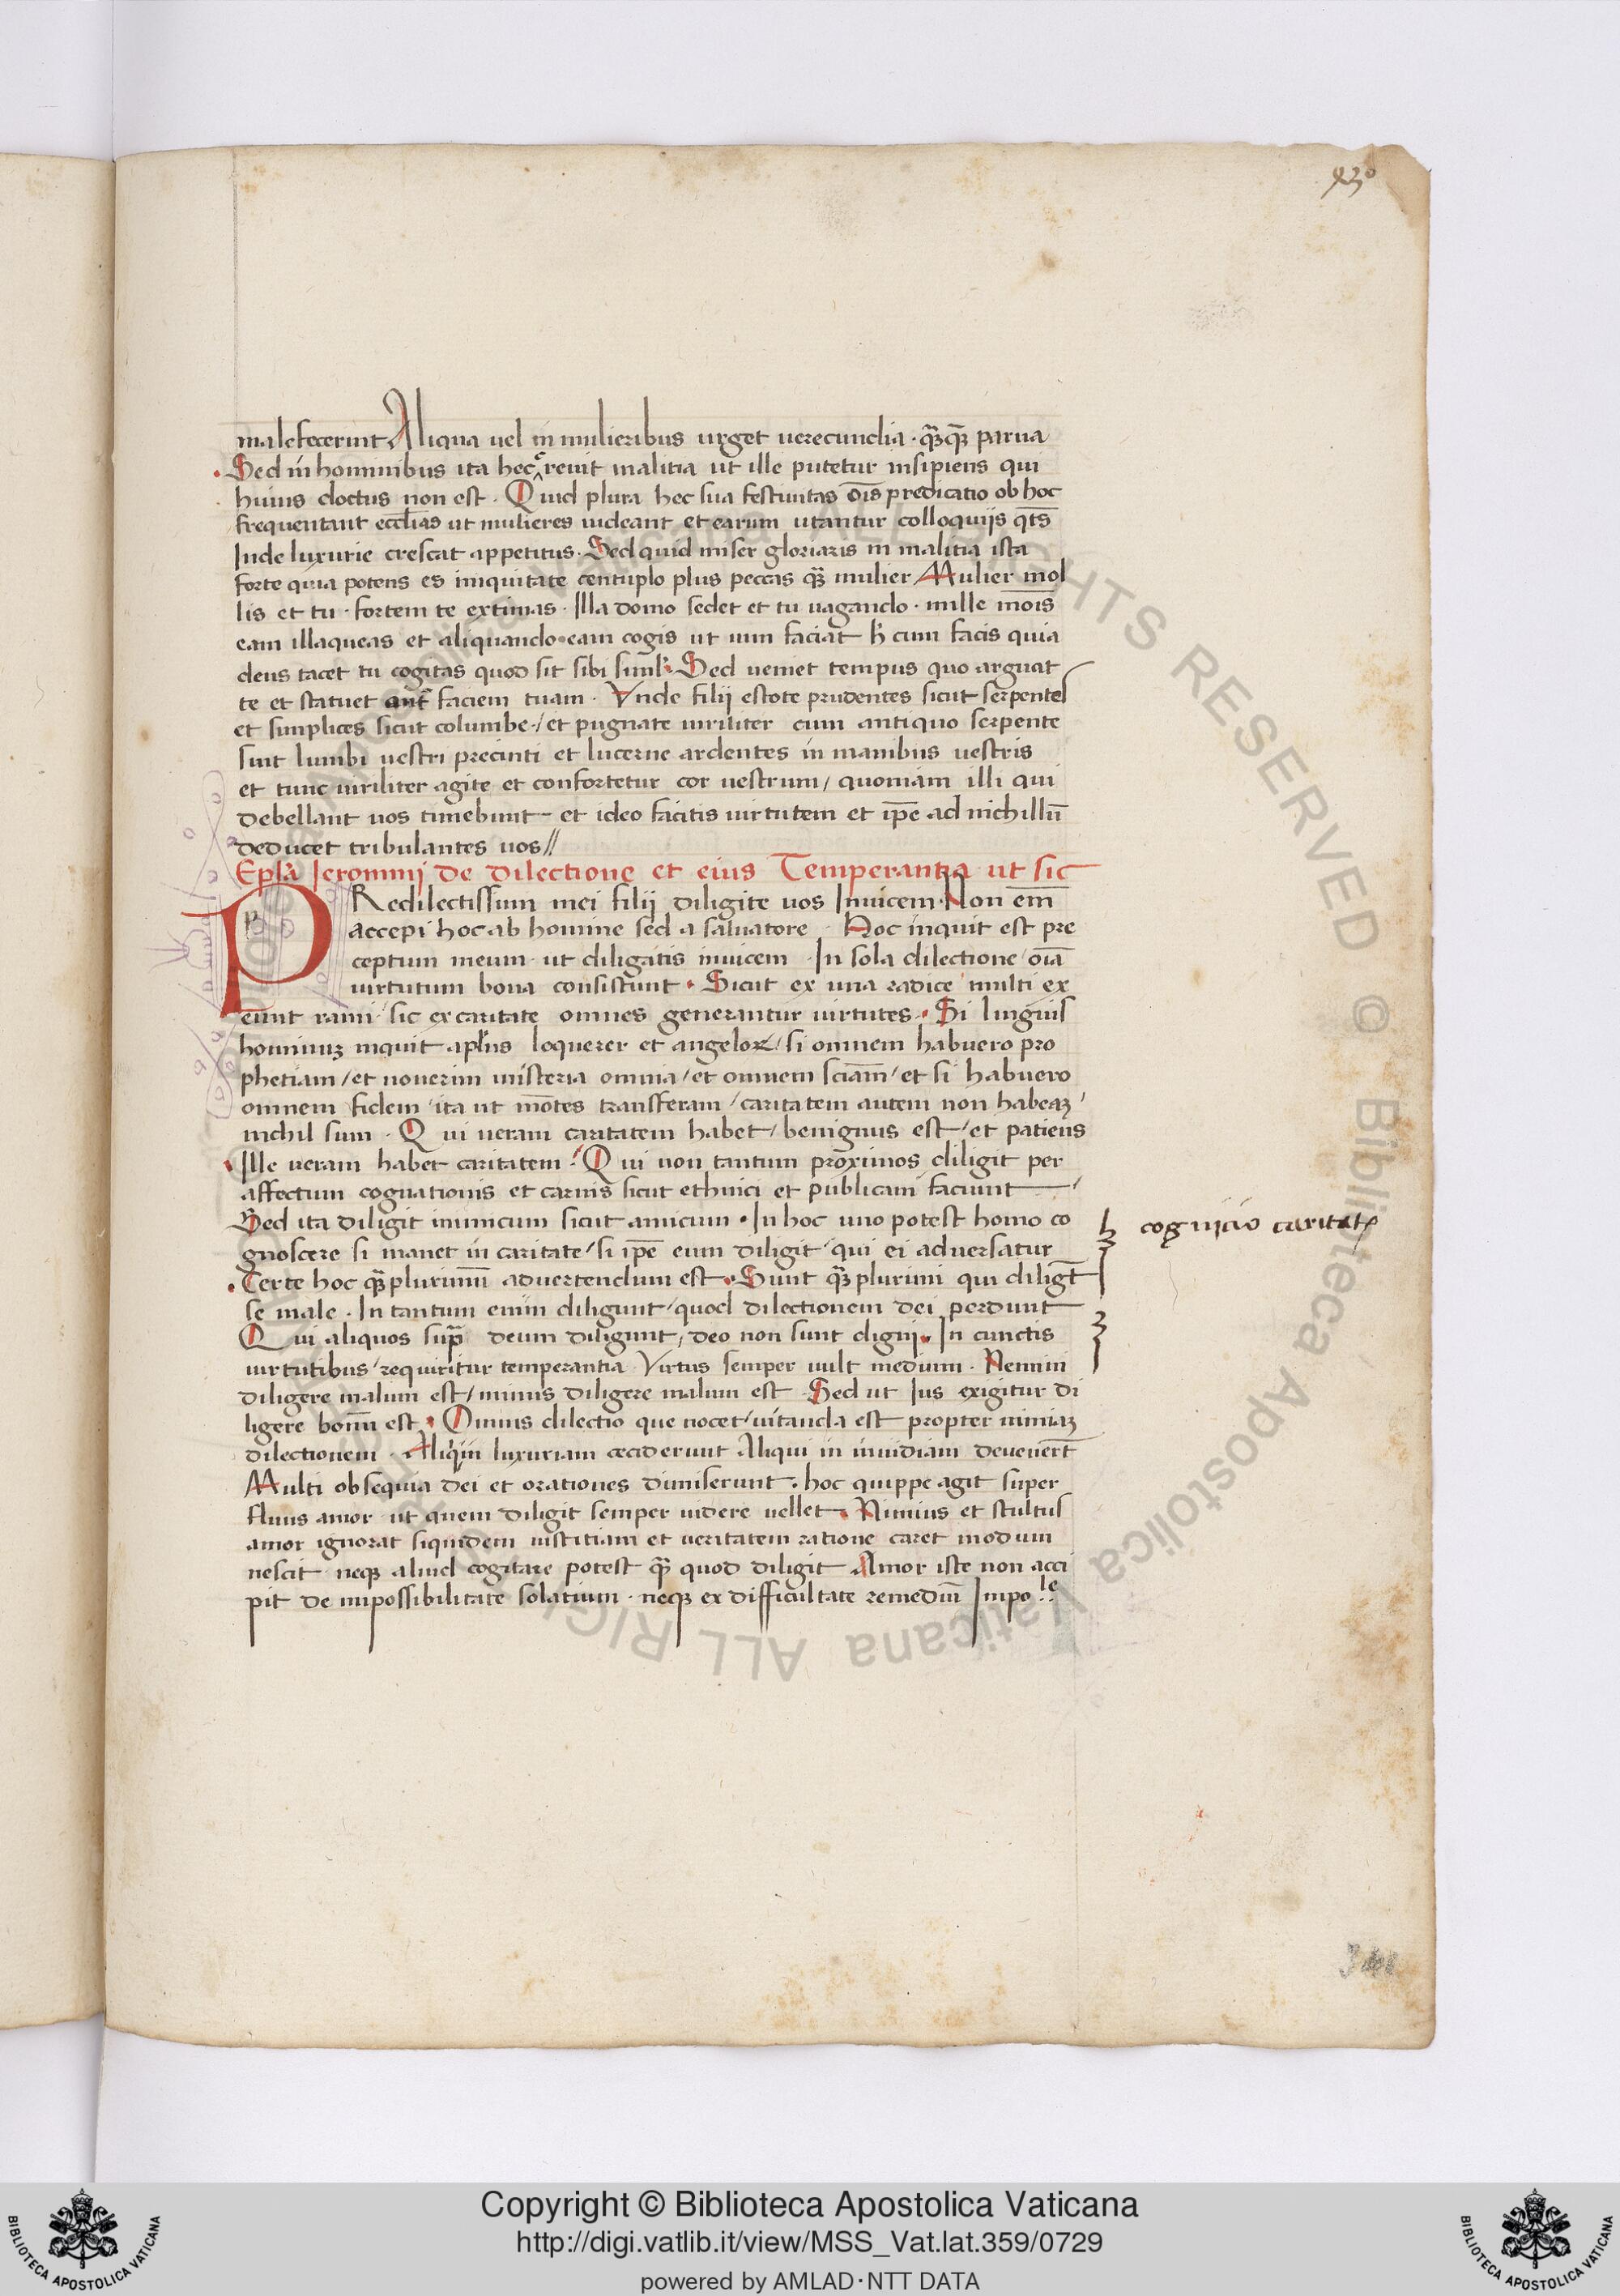 930
malefecerint Aliqua uel in mulieribus urget uerecundia · qȝqȝ parua
Sed in hominibus ita hec creuit malitia ut ille putetur insipiens qui
huius doctus non est · Quid plura hec sua festiuitas oĩs predicatio ob hoc
frequentant eccl̃ias ut mulieres uideant et earum utantur colloquijs qts̃
Inde luxurie crescat appetitus · Sed quid miser gloriaris in malitia ista
forte quia potens es iniquitate centuplo plus peccas qȝ̃ mulier Mulier mol
lis et tu · fortem te extimas · Illa domo sedet et tu uagando · mille mõis
eam illaqueas et aliquando eam cogis ut uim faciat h̃ cum facis quia
deus tacet tu cogitas quod sit sibi simĩl · Sed ueniet tempus quo arguat
te et statuet ant̃ faciem tuam · Vnde filij estote prudentes sicut serpentes
et simplices sicut columbe · / et pugnate uiriliter cum antiquo serpente
sint lumbi uestri precinti et lucerne ardentes in manibus uestris
et tunc uiriliter agite et confortetur cor uestrum / quoniam illi qui
debellant uos timebunt – et ideo facitis uirtutem et ip̃e ad nichillũ
deducet tribulantes uos //
Epl̃a Ieronimij de dilectione et eius Temperantia ut sic
p
PRedilectissimi mei filij diligite uos Inuicem · Non em̃
accepi hoc ab homine sed a saluatore · Hoc inquit est pre
ceptum meum · ut diligatis inuicem · In sola dilectione / oĩa
uirtutum bona consistunt · Sicut ex una radice multi ex
eunt rami / sic ex caritate omnes generantur uirtutes · Si linguis
hominuȝ inquit apl̃us loquerer et angeloꝝ / si omnem habuero pro
phetiam / et nouerim misteria omnia / et omnem sciam̃ / et si habuero
omnem fidem / ita ut mõtes transferam / caritatem autem non habeaȝ /
nichil sum · Qui ueram caritatem habet / benignus est / et patiens
Ille ueram habet caritatem · / Qui non tantum proximos diligit per
affectum cognationis et carnis sicut ethnici et publicani faciunt /
Sed ita diligit inimicum sicut amicum · In hoc uno potest homo co
gnoscere si manet in caritate / si ip̃e eum diligit / qui ei aduersatur
cognicio caritatꝭ
Certe hoc qȝ̃plurimũ aduertendum est · Sunt qȝ̃plurimi qui diligt̃
se male · In tantum enim diligunt / quod dilectionem dei perdunt
Qui aliquos sup̃ deum diligunt / deo non sunt digni · In cunctis
uirtutibus / requiritur temperantia · Virtus semper uult medium · Nemini
diligere malum est / minus diligere malum est · Sed ut Ius exigitur di
ligere bonũ est · Omnis dilectio que nocet / uitanda est propter nimiaȝ
dilectionem · Aliqui in luxuriam ceciderunt Aliqui in inuidiam deuenert̃
Multi obsequia dei et orationes dimiserunt · hoc quippe agit super
fluus amor ut quem diligit semper uidere uellet · Nimius et stultus
amor ignorat siquidem iustitiam et ueritatem ratione caret modum
nescit neqȝ aliud cogitare potest qȝ̃ quod diligit Amor iste non acci
pit de impossibilitate solatium · neqȝ ex difficultate remediũ Impo le
341
Copyright © Biblioteca Apostolica Vaticana
http://digi.vatlib.it/view/MSS_Vat.lat.359/0729
powered by AMLAD·NTT DATA
BIBLIOTECA APOSTOLICA VATICANA
BIBLIOTECA APOSTOLICA VATICANA